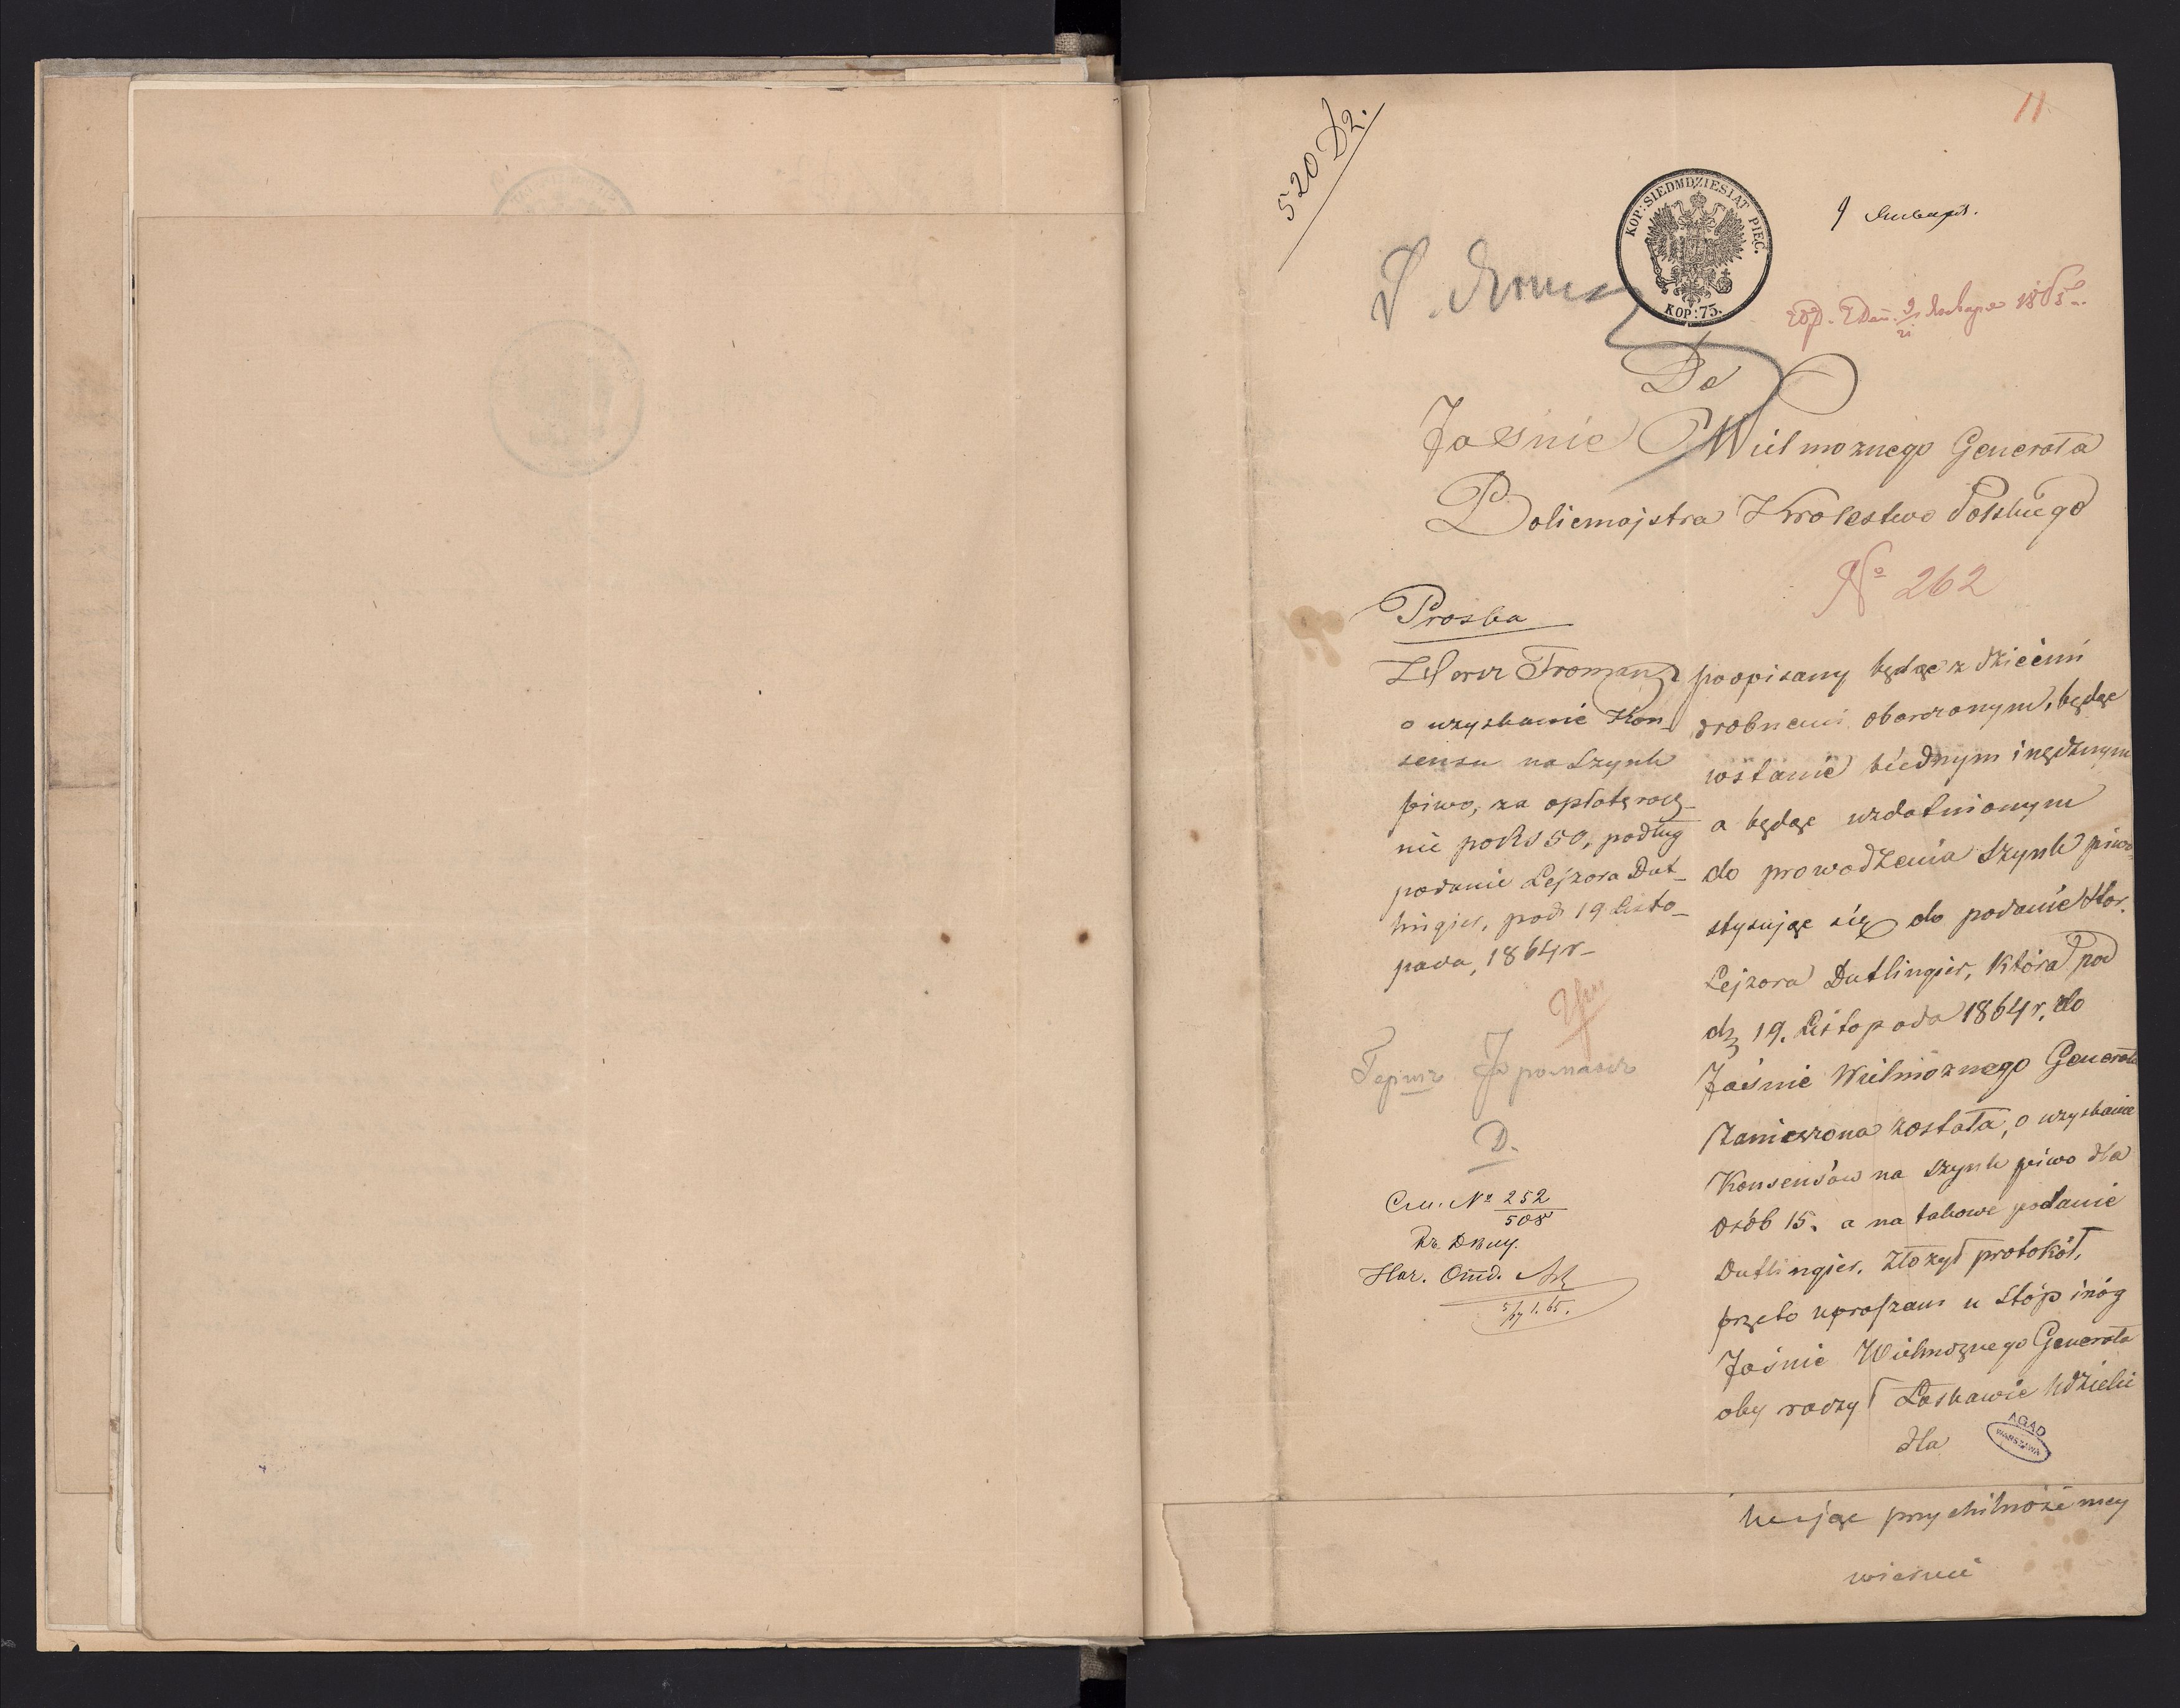 11
520 Dz.
KOP: SIEDMDZIESIĄT PIĘĆ.
KOP: 75.
9 Января.
Января 1865
Do
Jaśnie Wielmoznego Generała
Policmajstra Krolestwo Polskiego
№ 262
Prosba
Froman
o uzyskanie Kon-
sensu na Szynk
piwo, za opłatę rocz-
nie po Rs 50, podług
podanie Lejzora Dut-
lingier, pod 19 Listo-
pada, 1864 r-
D.
См. № 252
508
Наг. Отд.
5/17 1. 65.
popisany będąc z dziećmi
drobnemi obarczonym, będąc
wstanie biednym i nędznym
a będąc uzdatnionym
do prowadzenia Szynk piwo
stysując się do podanie Star.
Lejzora Dutlingier, która pod
dn 19. Listopada 1864 r, do
Jaśnie Wielmożnego Generała
Zaniesiona została, o uzyskanie
Konsensów na Szynk piwo dla
osób 15. a na takowe podanie
Dutlingier. złożył protokół,
przeto upraszam u Stóp i nóg
Jaśnie Wielmożnego Generała
aby raczył Łaskawie udzielić
dla
AGAD
WARSZAWA